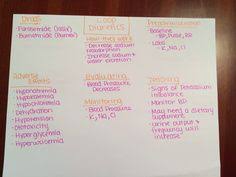 Drugs
- Furosemide (Lasix)
- Bumetanide (Bumex)
Loop Diuretics
How they work
- Decrease sodium reabsorption
- Increase sodium & water excretion
Preadministration
Baseline
- BP, Pulse, RR
- Labs
- K, Na, Cl
Adverse Effects
- Hyponatremia
- Hypokalemia
- Hypochloremia
- Dehydration
- Hypotension
- Ototoxicity
- Hyperglycemia
- Hyperuricemia
Evaluating
- Blood Pressure Decreases
Monitoring
- Blood Pressure
- K, Na, Cl
Teaching
- Signs of Potassium imbalance
- Monitor BP
- May need a dietary supplement
- Urine output & frequency will increase